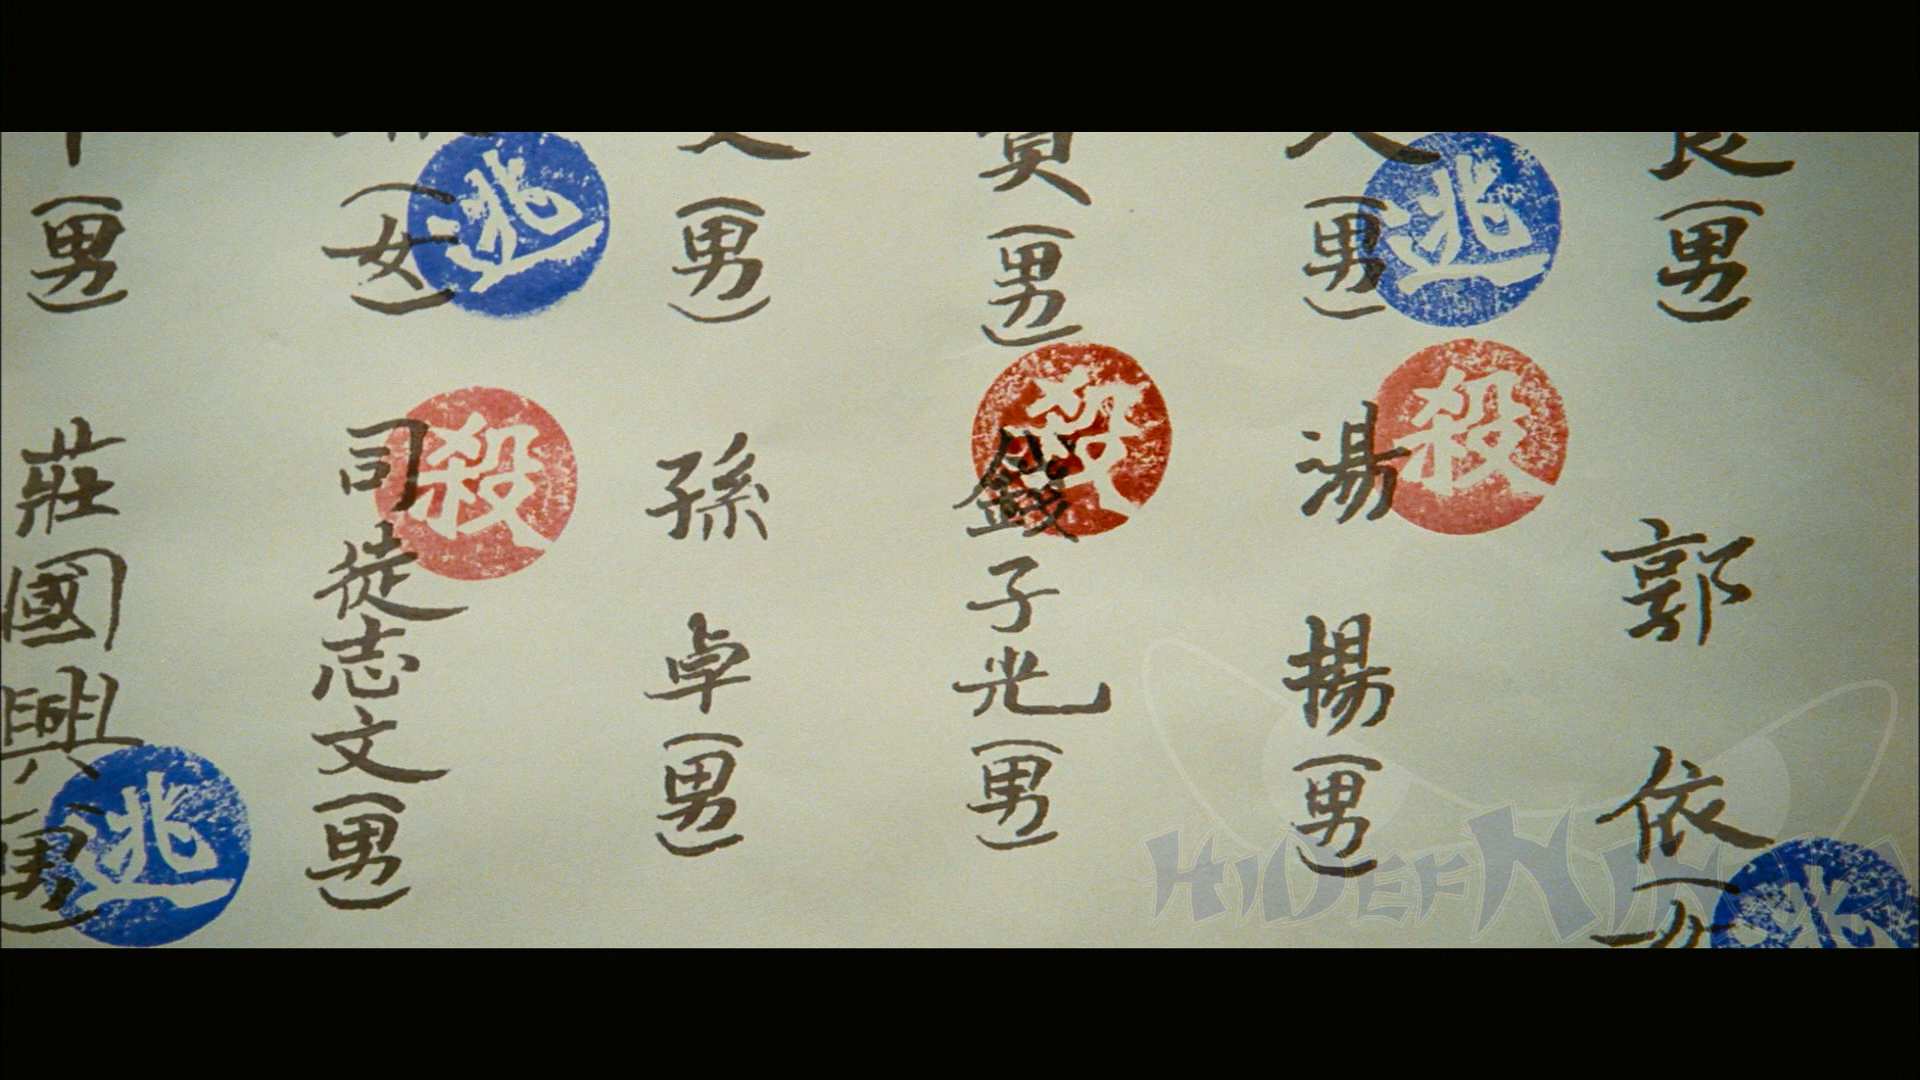 (男)
郭依
(男)
逃
殺
湯揚(男)
(男)
殺
錢子光(男)
(男)
孫卓(男)
(女)
逃
殺
司徒志文(男)
(男)
莊國興(男)
逃
HiDefNinja